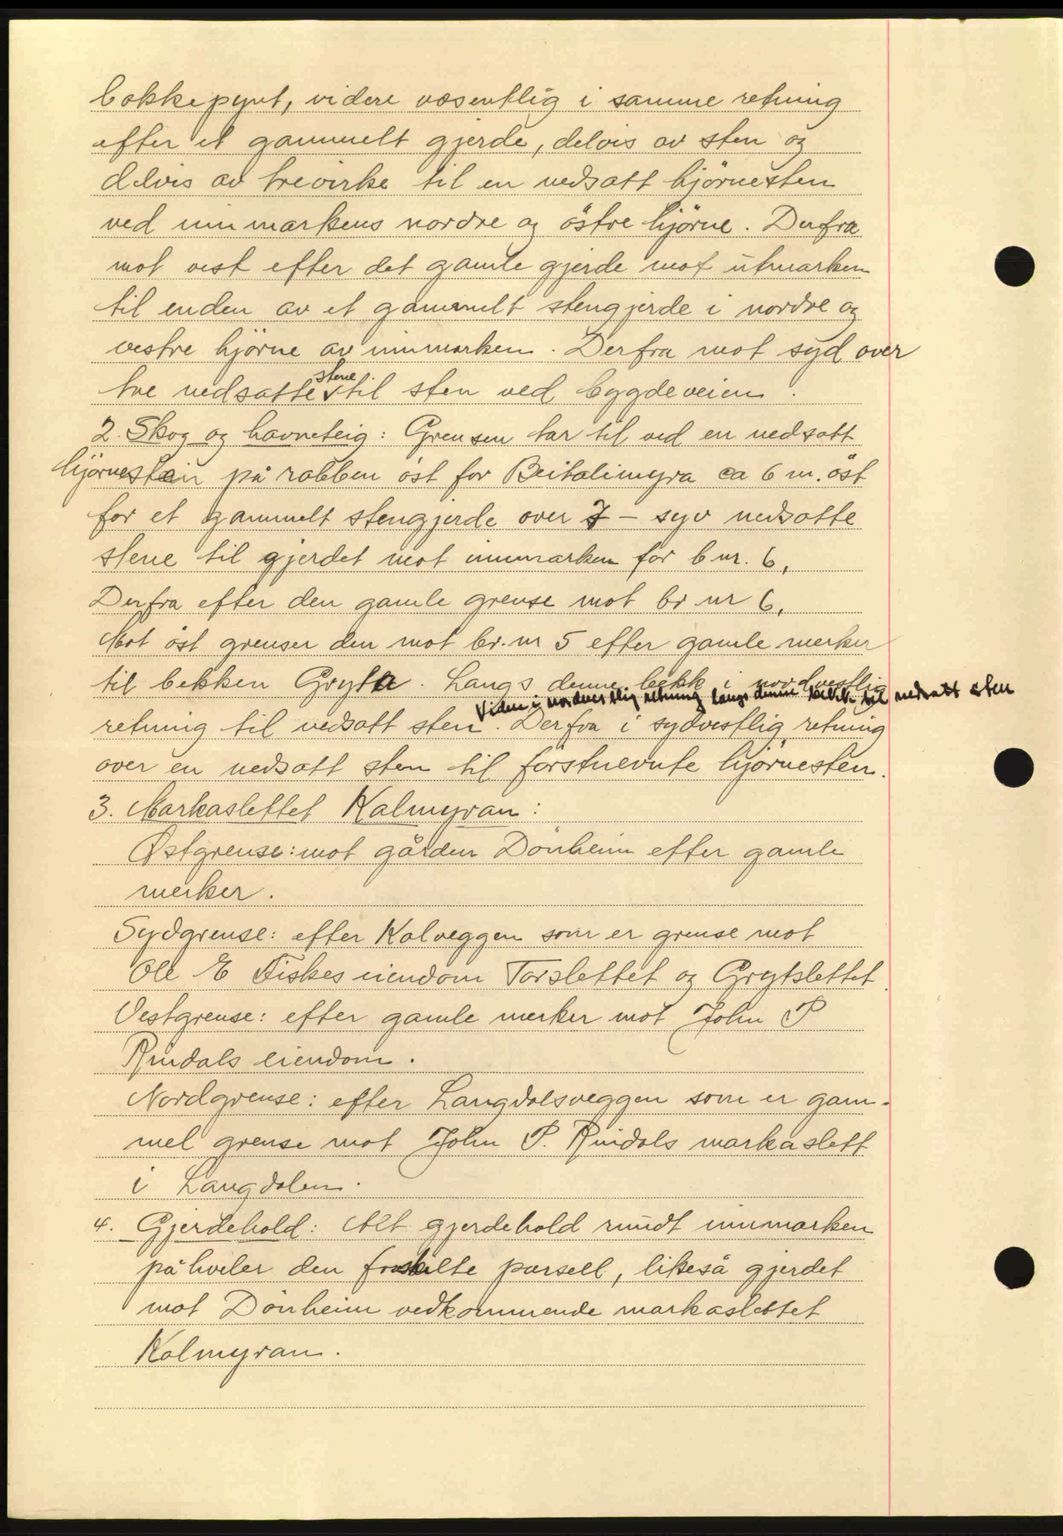 bakkepynt, videre væsentlig i samme retning
efter et gammelt gjerde, delvis av sten og
delvis av trevirke til en nedsatt hjörnesten
ved innmarkens nordre og östre hjörne. Derfra
mot vest efter det gamle gjerde mot utmarken
til enden av et gammelt stengjerde i nordre og
vestre hjörne av innmarken. Derfra mot syd over
tre nedsatte stene til sten ved bygdeveien.
2. Skog og havneteig: Grensen tar til ved en nedsatt
hjörnestein på rabben öst for Beitalimyra ca 6 m. öst
for et gammelt stengjerde over 7 - syv nedsatte
stene til gjerdet mot innmarken for b nr. 6,
Derfra efter den gamle grense mot br nr 6,
Mot öst grenser den mot br. nr 5 efter gamle merker
til bekken Gryta. Langs denne bekk i nordvestlig
Videre i nordvestlig retning langs denne bekk til nedsatt sten
retning til nedsatt sten. Derfra i sydvestlig retning
over en nedsatt sten til förstnevnte hjörnesten.
3. Markaslettet Kalmyran:
Östgrense: mot gården Dönheim efter gamle
merker.
Sydgrense: efter Kalveggen som er grense mot
Ole E Fiskes eiendom Torslettet og Grytslettet.
Vestgrense: efter gamle merker mot John P
Rindals eiendom.
Nordgrense: efter Langdalsveggen som er gam-
mel grense mot John P. Rindals markaslett
i Langdalen.
4. Gjerdehold: Alt gjerdehold rundt innmarken
påhviler den fraskilte parsell, likeså gjerdet
mot Dönheim vedkommende markaslettet
Kalmyran.